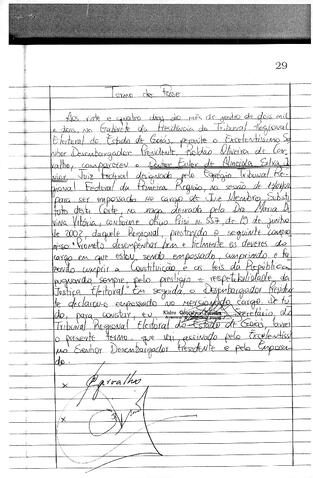 29
Termo de Posse
Aos vinte e quatro dias do mês de junho de dois mil
e dois, no Gabinete da Presidência do Tribunal Regional
Eleitoral do Estado de Goiás, perante o Excelentíssimo Se
nhor Desembargador Presidente Roldão Oliveira de Car
valho, compareceu o Doutor Euler de Almeida Silva Jú
nior, Juiz Federal designado pelo Egrégio Tribunal Re
gional Federal da Primeira Região na sessão de
para ser empossado no cargo de Juiz Membro Substi
tuto desta Corte, na vaga deixada pela Dra. Maria Di
vina Vitória, conforme ofício nº 557, de 19 de junho
de 2002, daquele Regional, prestando o seguinte compro
misso: "Prometo desempenhar bem e fielmente os deveres do
cargo em que estou sendo empossado, cumprindo e fa
zendo cumprir a Constituição e as leis da República,
pugnando sempre pelo prestígio e respeitabilidade da
Justiça Eleitoral". Em seguida, o Desembargador Presiden
te declarou-o empossado no mencionado cargo. De tu
do, para constar, eu, Secretário do
Tribunal Regional Eleitoral do Estado de Goiás, lavrei
o presente termo, que vai assinado pelo Excelentíssi
mo Senhor Desembargador Presidente e pelo Empossa
do.
x Carvalho
x